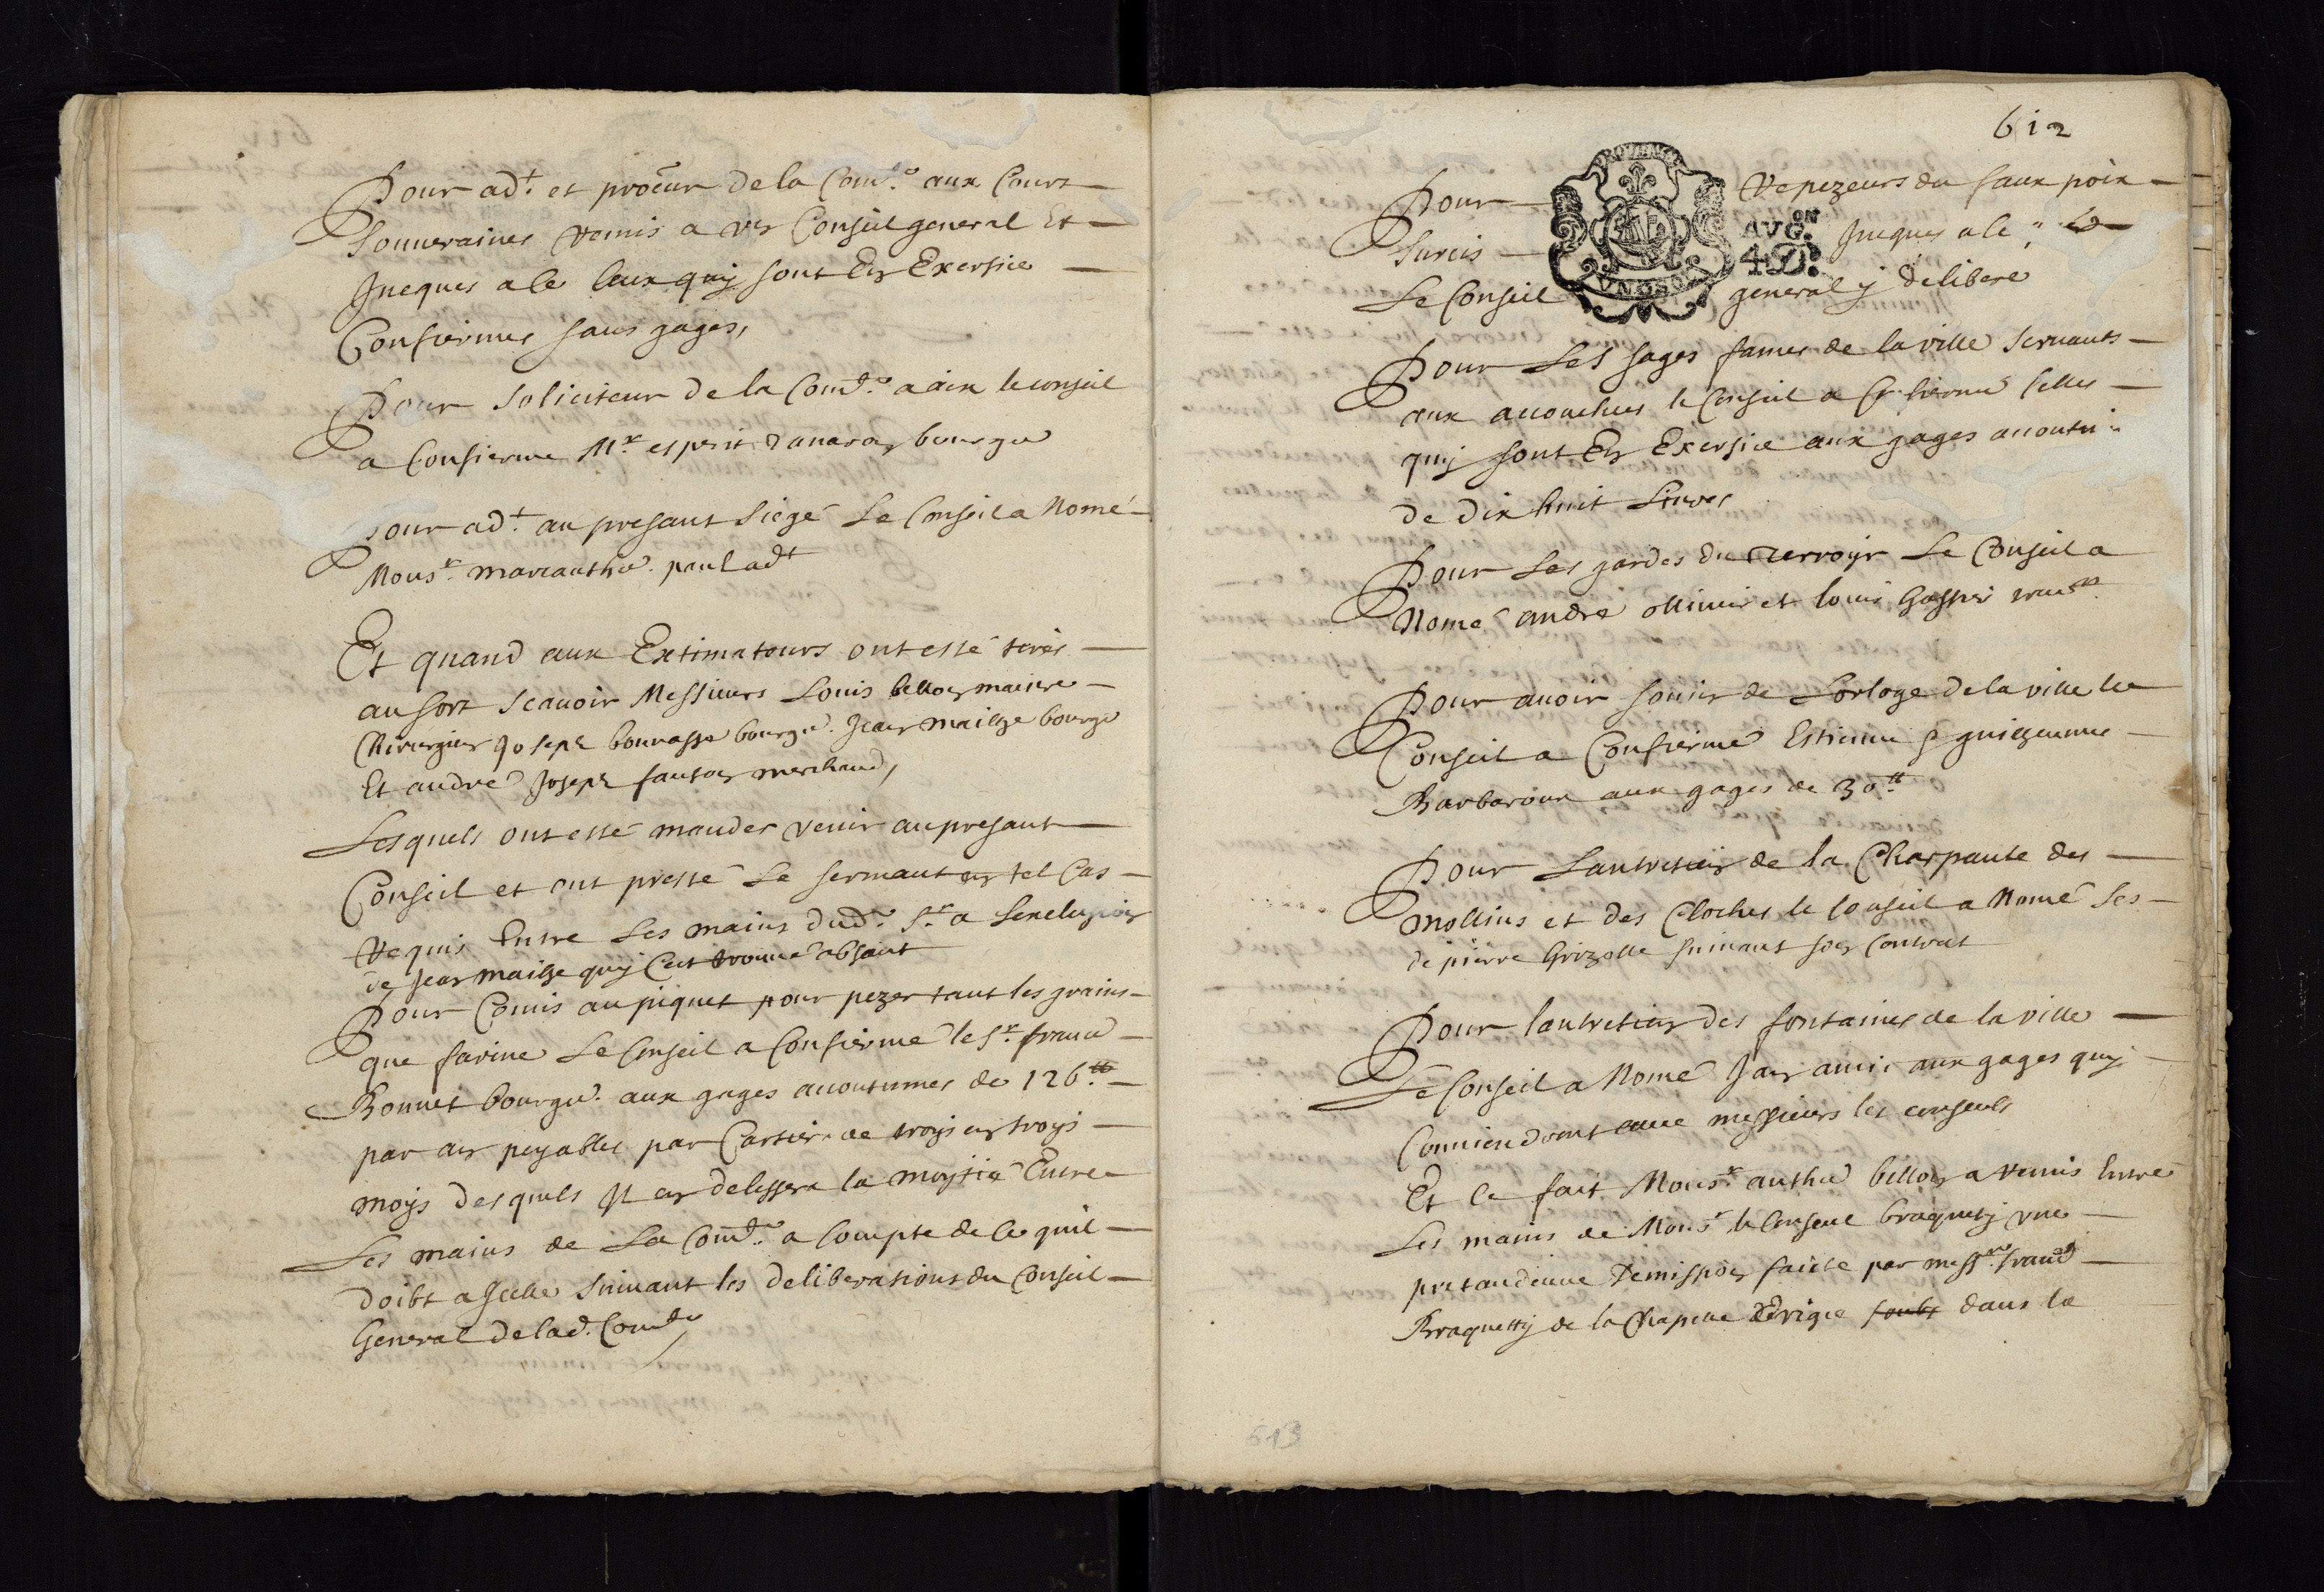 Pour ad.t et procur de la Com.té aux Cours
Souueraines remis a vn Conseil general Et
Jucques a ce Ceux quy sont En Exersice
Confiermes sans gages,
Pour soliciteur de la Com.té a aix le conseil
a Confierme M.r esperit bourgu
Pour ad.t au presant siege Le Conseil a Nomé
Mons.r marcanthe. paul ad.t
Et quand aux Extimateurs ont esté tirés
au sort scauoir Messieurs Louis bellon maitre
Chirurgien Joseph bourgu. Jean bourgu
Et andre Joseph fauton merchand,
Lesquels ont esté mandes venir au presant
Conseil et ont presté Le sermant en tel Cas
requis Entre Les mains dud. S.r a Lexclupion
de Jean quy Cest trouue absant
Pour Comis au piquet pour pezer tant les grains
que farine Le Conseil a Confierme le S.r franc
Bonnet bourgu. aux gages accoutumes de 126.tt
par an peyables par Cartier de troys en troys
moys desquels Jl en delessera la moytié Entre
Les mains de La Com.té a Compte de Ce quil
doibt a Jcelle suiuant les deliberations du Conseil
General de lad. Com.té
612
Pour repezeurs du faux poix
PROVANCE
AVG.ON
4D.
surcis Jucques a ce
Le Conseil general y delibere
Pour Les sages fames de la ville seruants
aux accouchees le Conseil a Confierme Celles
quy sont En Exersice aux gages accoutu
de dix huit Liures
Pour Les gardes du terroyr Le Conseil a
Nomé andre olliuier et louis
Pour auoir souin de Lorloge de la ville le
Conseil a Confiermé Estienne guilheaume
Barbaroux aux gages de 30.tt
Pour Lantretien de la Charpante des
mollins et des Cloches le conseil a Nomé
de pierre Grizolle suiuant son Contrat
Pour lantretien des fontaines de la ville
Le Conseil a Nomé Jan amic aux gages quy
Conuiendront auec messieurs les conseuls
Et Ce fait Mons.r anthe bellon a remis Entre
Les mains de Mons.r le Conseul braquety vne
pretandeuue demission faicte par mess.re franc
Braquetty de la Chapelle Erigee soubs dans la
613